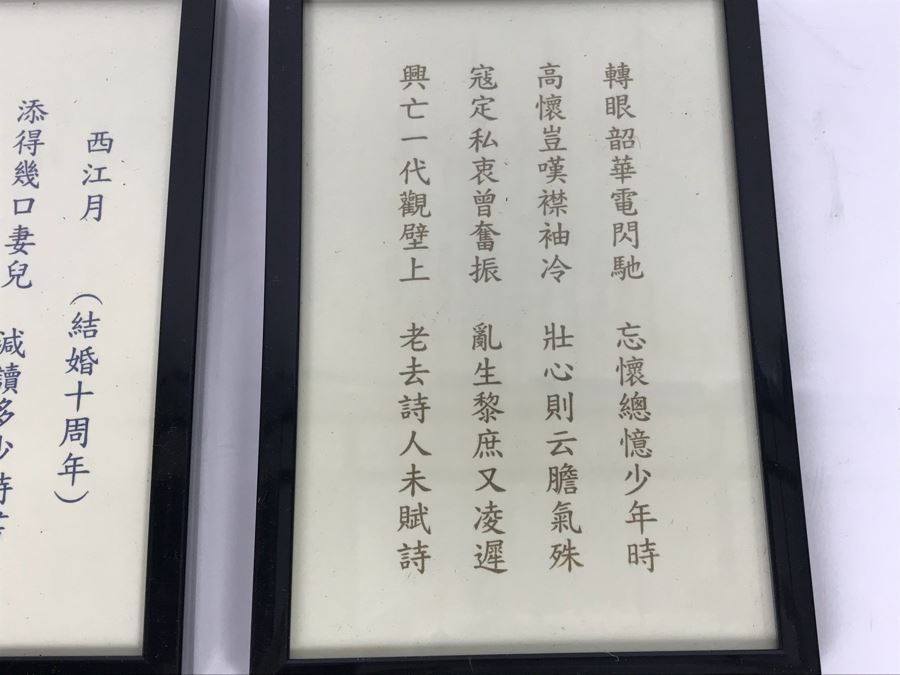 轉眼韶華電閃馳　忘懷總憶少年時
高懷豈嘆襟袖冷　壯心則云膽氣殊
寇定私衷曾奮振　亂生黎庶又凌遲
興亡一代觀壁上　老去詩人未賦詩
西江月　（結婚十周年）
添得幾口妻兒　減讀多少詩